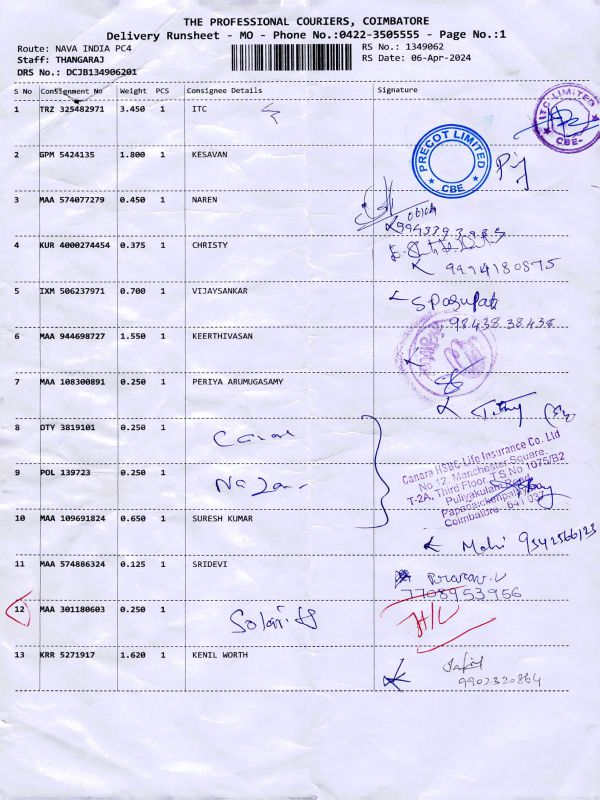 THE PROFESSIONAL COURIERS, COIMBATORE
Delivery Runsheet - MO - Phone No.:0422-3505555 - Page No.:1
Route: NAVA INDIA PC4
RS No.: 1349062
Staff: THANGARAJ
RS Date: 06-Apr-2024
DRS No.: DCJB134906201
S No Consignment No Weight PCS Consignee Details Signature
1 TRZ 325482971 3.450 1 ITC
ITC-LIMITED
CBE-
2 GPM 5424135 1.800 1 KESAVAN
PRECOT LIMITED
CBE
3 MAA 574077279 0.450 1 NAREN
4 KUR 4000274454 0.375 1 CHRISTY
9994180875
5 IXM 506237971 0.700 1 VIJAYSANKAR
98438 38438
6 MAA 944698727 1.550 1 KEERTHIVASAN
7 MAA 108300891 0.250 1 PERIYA ARUMUGASAMY
8 DTY 3819101 0.250 1
Canara HSBC Life Insurance Co. Ltd
No 12, Manchester Square,
T-2A, Third Floor, T.S No 1075/B2
Puliyakulam Road,
Papanaickenpalayam,
Coimbatore - 641 037
9 POL 139723 0.250 1
10 MAA 109691824 0.650 1 SURESH KUMAR
Mohi 9342566123
11 MAA 574886324 0.125 1 SRIDEVI
7708953956
12 MAA 301180603 0.250 1
13 KRR 5271917 1.620 1 KENIL WORTH
9902320864